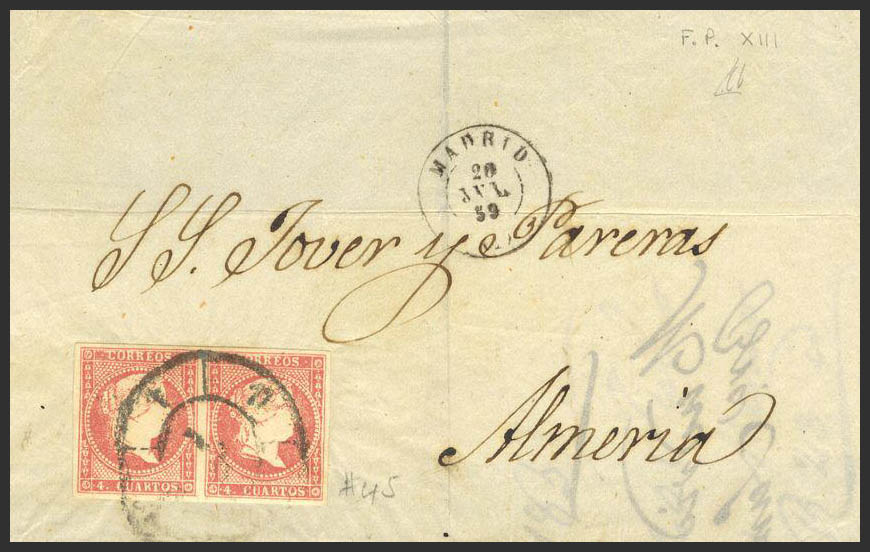 F. P. XIII
MADRID
20
JUL
59
S S. Jover y Pareras
CORREOS CORREOS
4. CUARTOS 4. CUARTOS
Almeria
#45